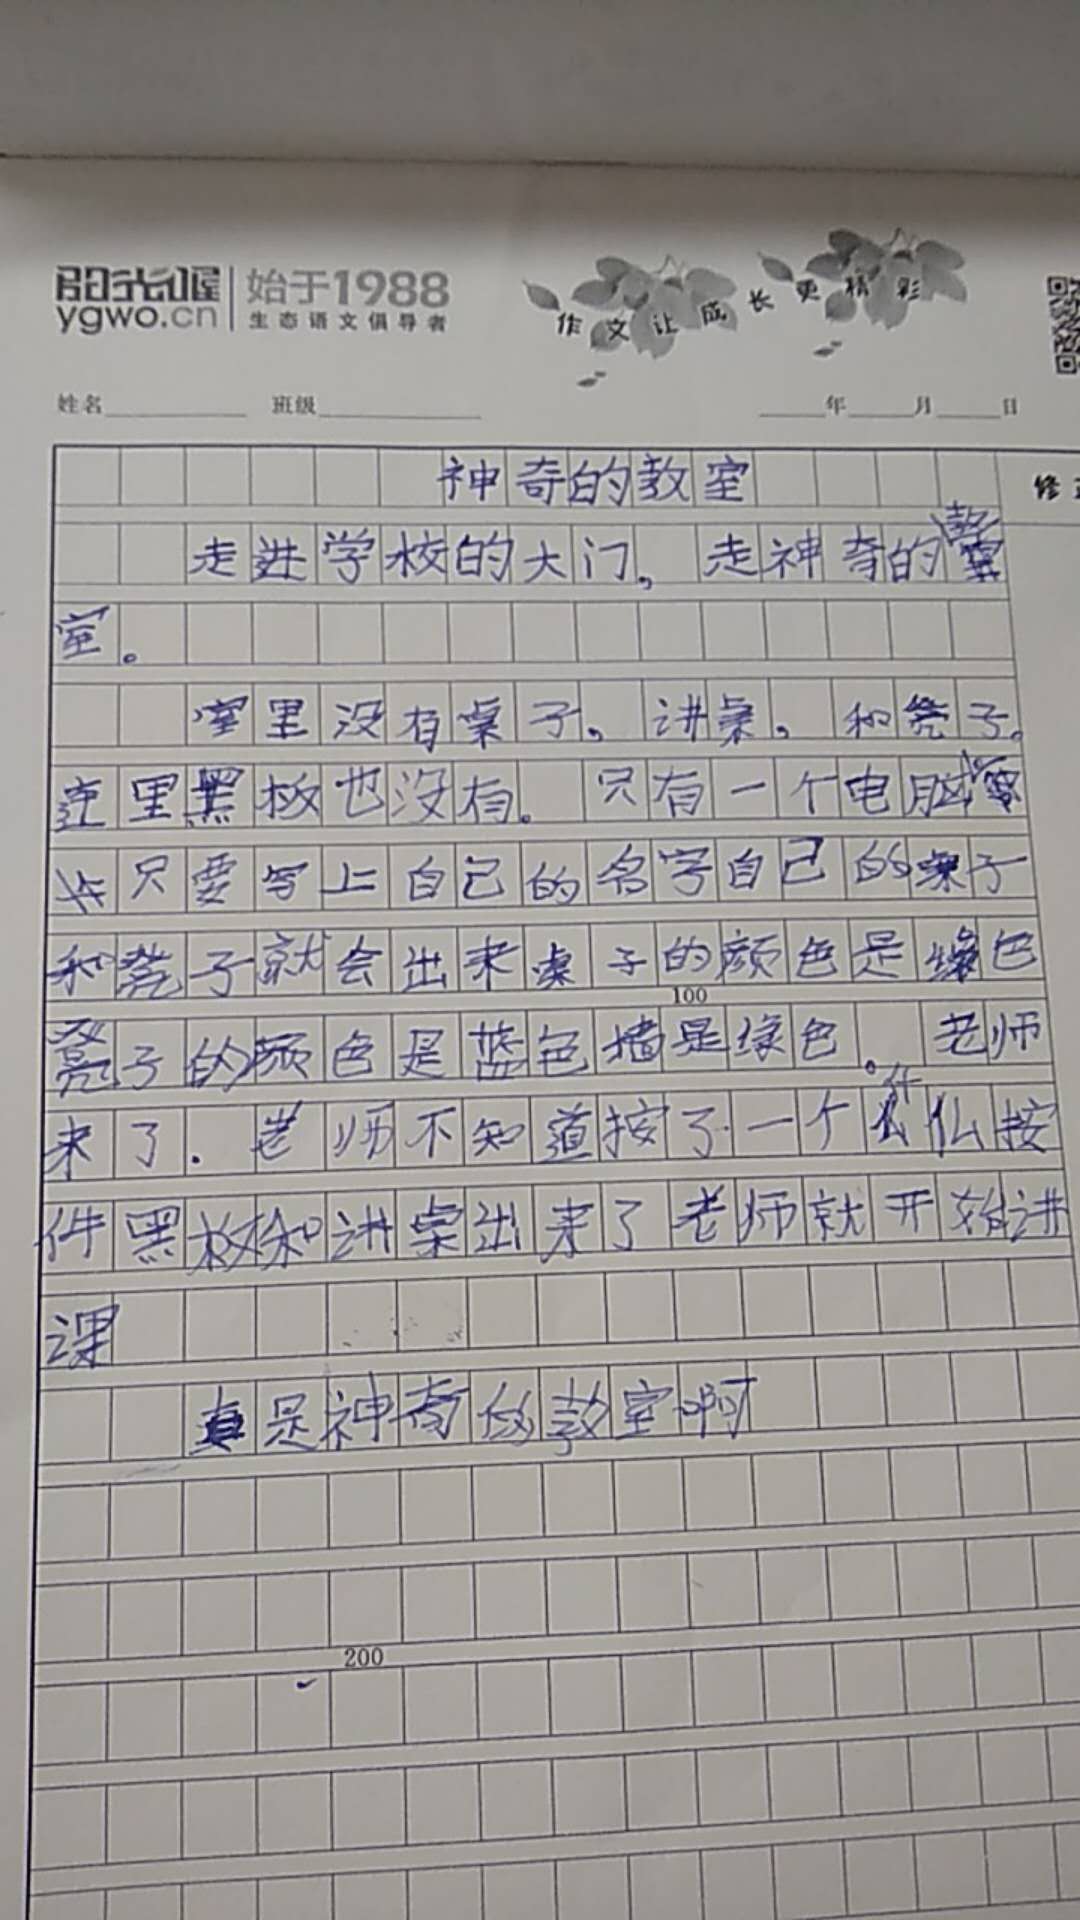 阳光喔 始于1988
ygwo.cn 生态语文倡导者
作文让成长更精彩
姓名 班级 年 月 日
神奇的教室
修
走进学校的大门，走神奇的教
室。
室里没有桌子，讲桌，和凳子。
室里黑板也没有。只有一个电脑
只要写上自己的名字自己的桌子
和凳子就会出来桌子的颜色是绿色
100
凳子的颜色是蓝色墙是绿色。老师
来了．老师不知道按了一个什么按
件黑板和讲桌出来了老师就开始讲
课
真是神奇的教室啊
200